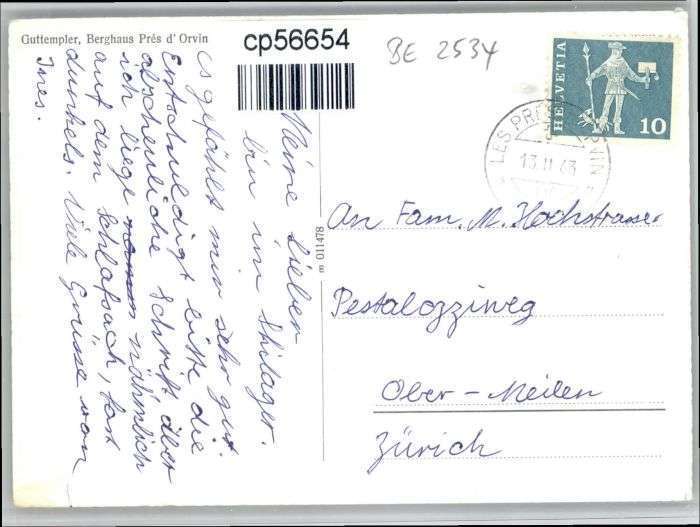 Guttempler, Berghaus Prés d'Orvin
cp56654
BE 2534
HELVETIA
10
LES PRÉS D'ORVIN
13.II.63
Meine Lieben
bin im Skilager.
es gefählt mir sehr gut
Entschuldigt bitte die
abscheuliche Schrift, aber
ich liege nähmlich
auf dem Schlafsack, fast
dunkels. Viele Grüsse von
Ines.
874110
An Fam. M. Hochstrasser
Pestalozziweg
Ober-Meilen
Zürich